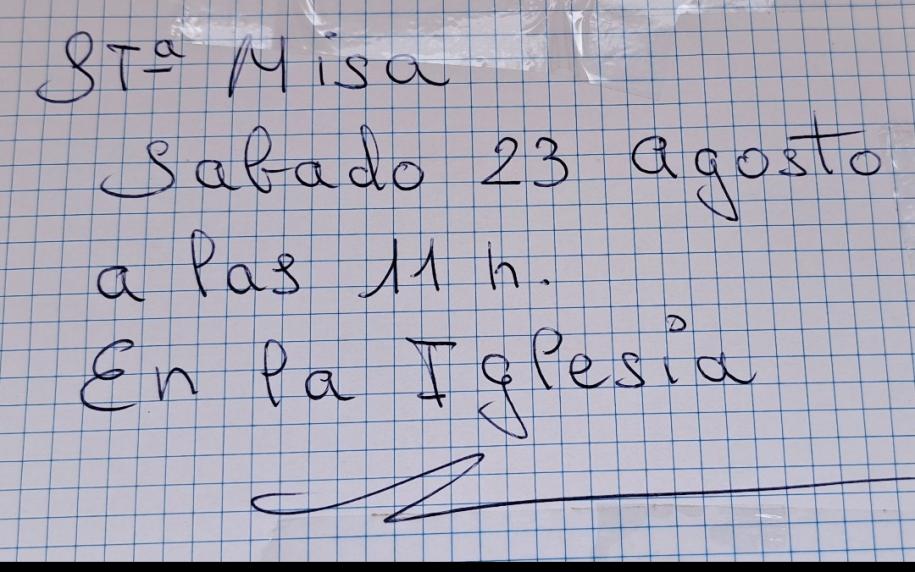 STª Misa
Sabado 23 agosto
a las 11 h.
En la Iglesia